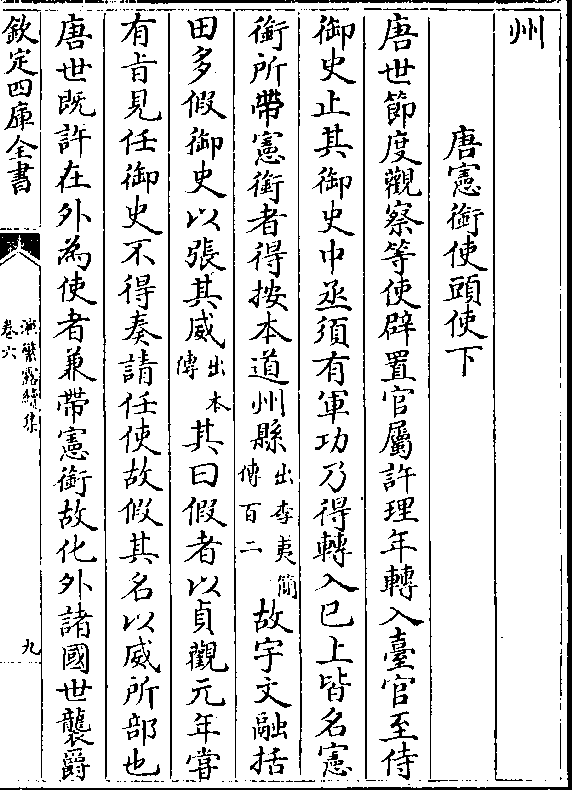 州
唐憲銜使頭使下
唐世節度觀察等使辟置官屬許理年轉入臺官至侍
御史止其御史中丞須有軍功乃得轉入已上皆名憲
銜所帶憲銜者得按本道州縣出李夷簡傳百二故宇文融括
田多假御史以張其威出本傳其曰假者以貞觀元年嘗
有旨見任御史不得奏請任使故假其名以威所部也
唐世既許在外為使者兼帶憲銜故化外諸國世襲爵
欽定四庫全書
演繁露續集
卷六
九